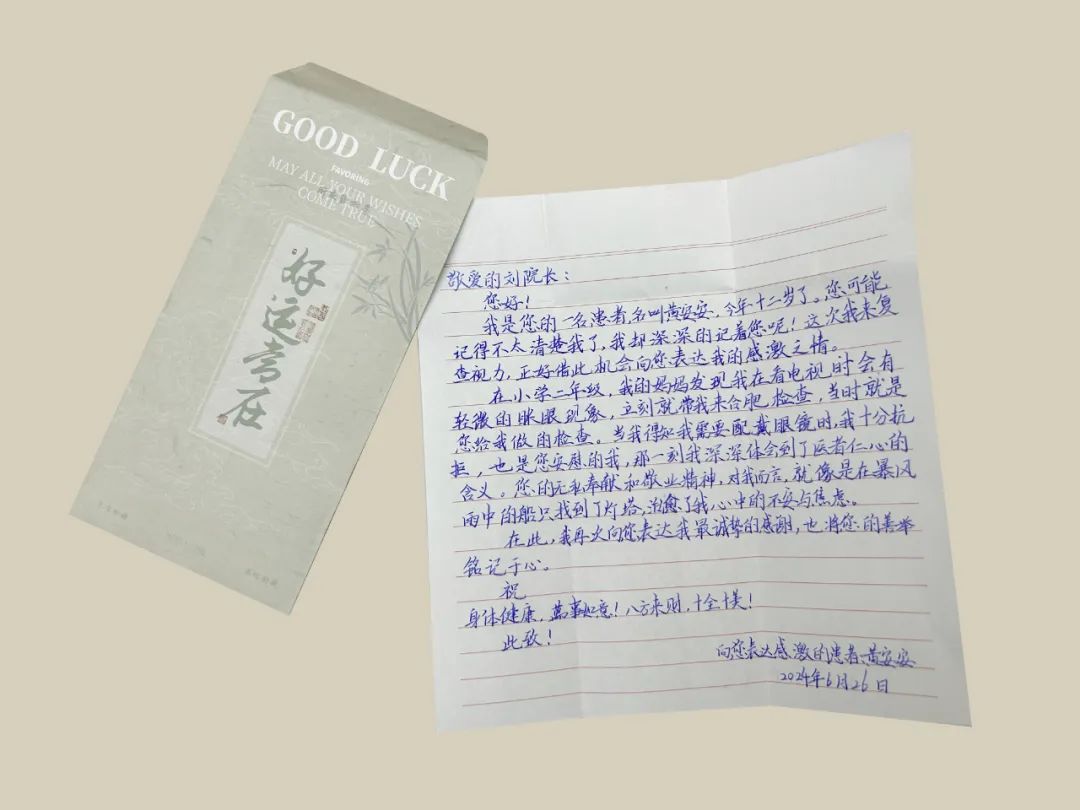 GOOD LUCK
FAVORING
MAY ALL YOUR WISHES
COME TRUE
好运常在
敬爱的刘院长：
您好！
我是您的一名患者，名叫黄安安，今年十二岁了。您可能
记得不太清楚我了，我却深深的记着您呢！这次我来复
查视力，正好借此机会向您表达我的感激之情。
在小学二年级，我的妈妈发现我在看电视时会有
轻微的眯眼现象，立刻就带我来合肥检查，当时就是
您给我做的检查。当我得知我需要配戴眼镜时，我十分抗
拒，也是您安慰的我，那一刻我深深体会到了医者仁心的
含义。您的无私奉献和敬业精神，对我而言，就像是在暴风
雨中的船只找到了灯塔，治愈了我心中的不安与焦虑。
在此，我再次向您表达我最诚挚的感谢，也将您的善举
铭记于心。
祝
身体健康，萬事如意！八方来财，十全十美！
此致！
向您表达感激的患者：黄安安
2024年6月26日